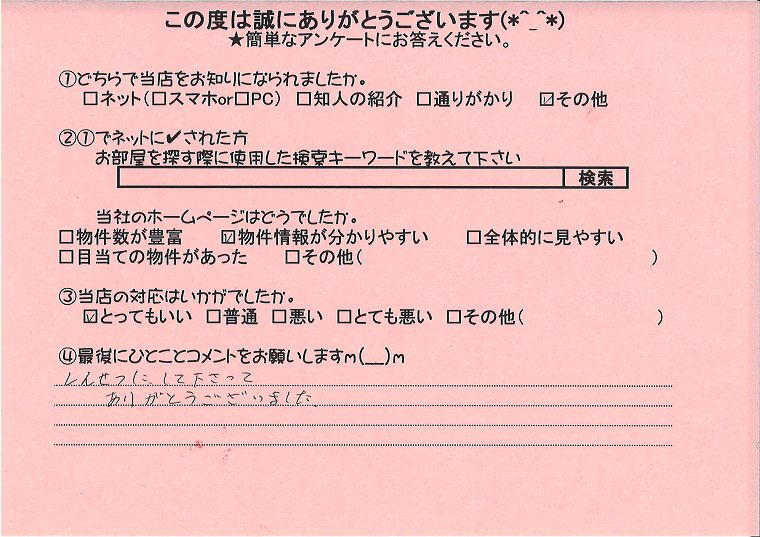 この度は誠にありがとうございます(*^_^*)
★簡単なアンケートにお答えください。
①どちらで当店をお知りになられましたか。
□ネット(□スマホor□PC) □知人の紹介 □通りがかり ☑その他
②①でネットに✔された方
お部屋を探す際に使用した検索キーワードを教えて下さい
検索
当社のホームページはどうでしたか。
□物件数が豊富 ☑物件情報が分かりやすい □全体的に見やすい
□目当ての物件があった □その他( )
③当店の対応はいかがでしたか。
☑とってもいい □普通 □悪い □とても悪い □その他( )
④最後にひとことコメントをお願いしますm(__)m
しんせつにして下さって
ありがとうございました。